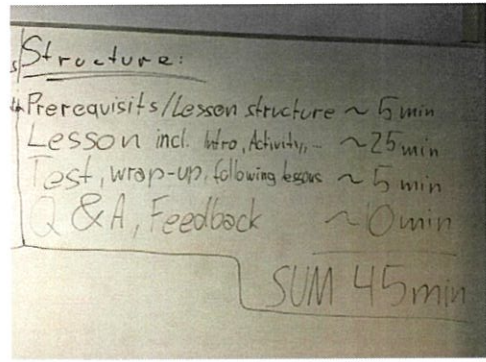 Structure:
Prerequisits/Lesson structure ~ 5 min
Lesson incl. Intro, Activity, .. ~25 min
Test, wrap-up, following lessons ~ 5 min
Q & A, Feedback ~10 min
SUM 45min